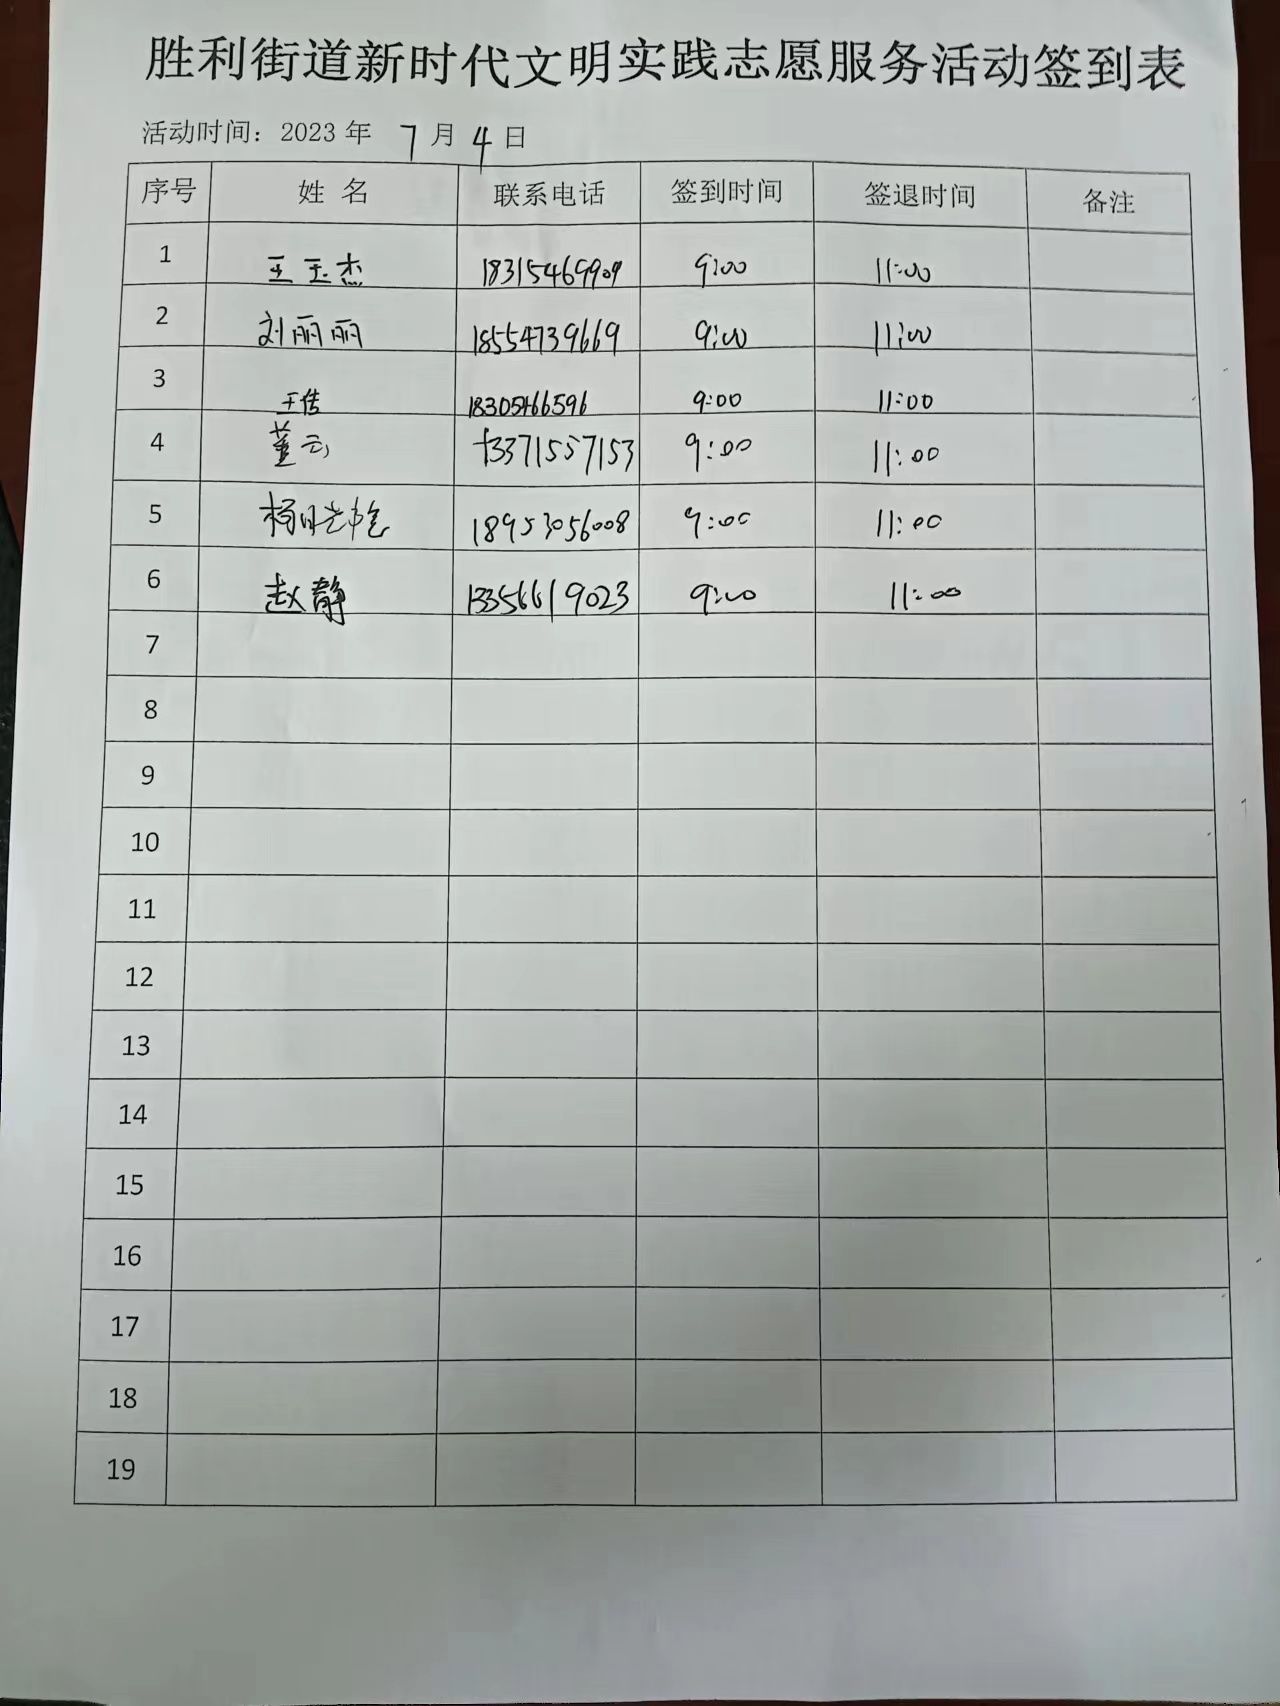 胜利街道新时代文明实践志愿服务活动签到表
活动时间：2023 年 7 月 4 日
序号 姓 名 联系电话 签到时间 签退时间 备注
1 王玉杰 18315469909 9:00 11:00
2 刘丽丽 18554739669 9:00 11:00
3 王倩 18305466596 9:00 11:00
4 董云 13371557153 9:00 11:00
5 18953056008 9:00 11:00
6 赵静 13356619023 9:00 11:00
7
8
9
10
11
12
13
14
15
16
17
18
19